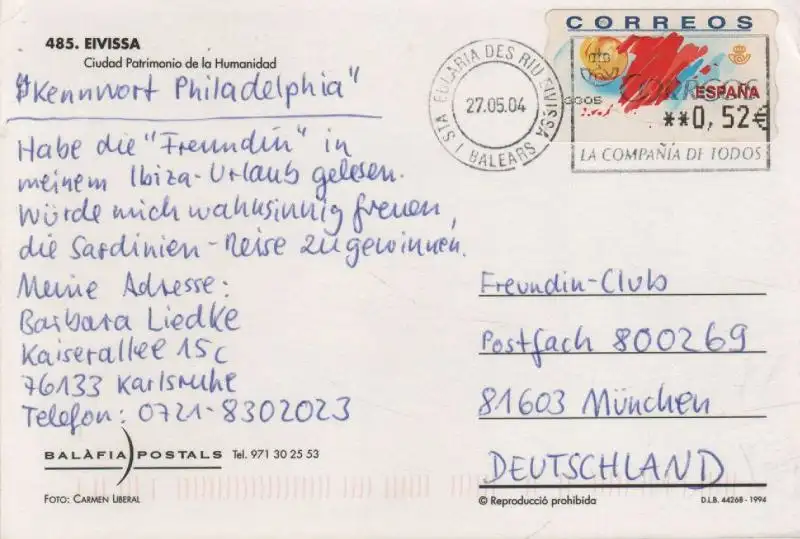 485. EIVISSA
Ciudad Patrimonio de la Humanidad
"Kennwort Philadelphia"
Habe die "Freundin" in
meinem Ibiza-Urlaub gelesen.
Würde mich wahnsinnig freuen,
die Sardinien-Reise zu gewinnen.
Meine Adresse:
Barbara Liedke
Kaiserallee 15c
76133 Karlsruhe
Telefon: 0721-8302023
BALÀFIA POSTALS Tel. 971 30 25 53
FOTO: CARMEN LIBERAL
STA EULARIA DES RIU EIVISSA
27.05.04
I BALEARS
CORREOS
CORREOS
3305
ESPAÑA
**0,52€
LA COMPAÑÍA DE TODOS
Freundin-Club
Postfach 800269
81603 München
DEUTSCHLAND
© Reproducció prohibida
D.L.B. 44268 - 1994